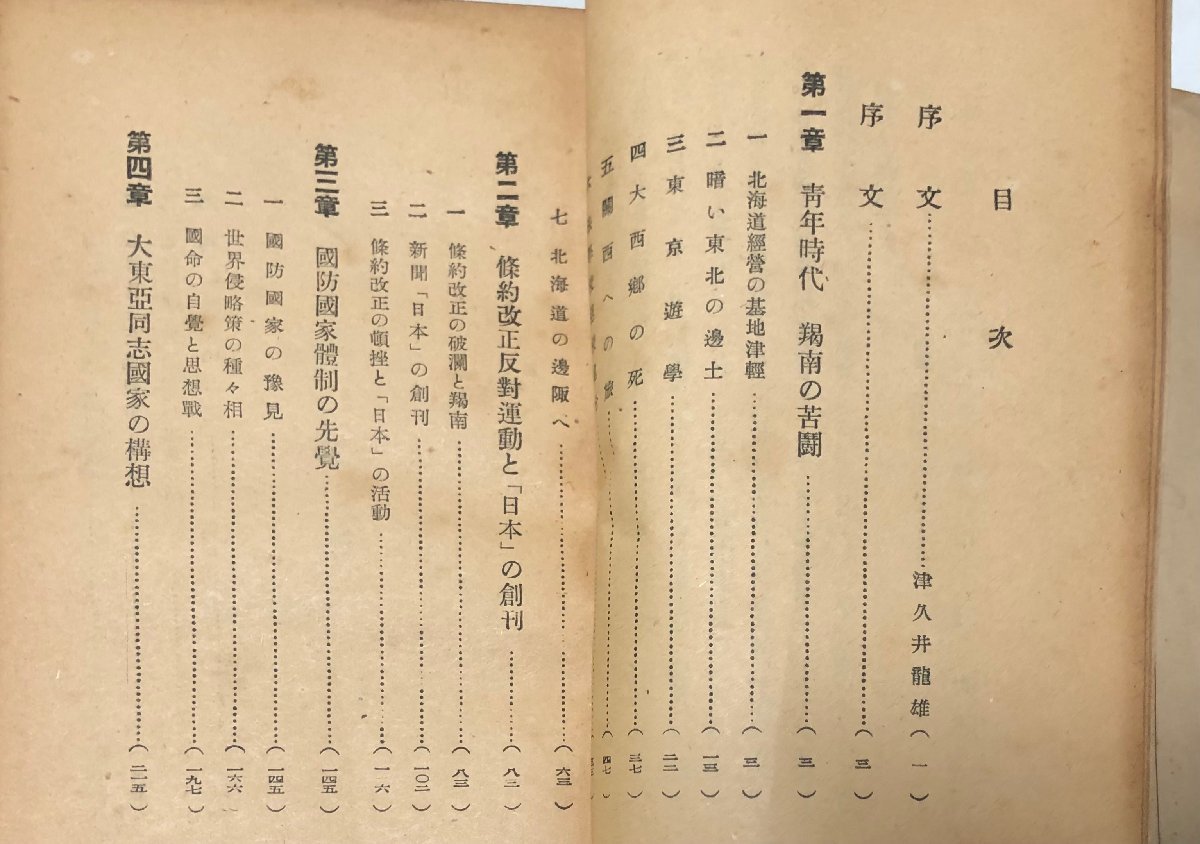 目次
序文……津久井龍雄(一)
序文……(三)
第一章 靑年時代 羯南の苦鬪……(三)
一 北海道經營の基地津輕……(三)
二 暗い東北の邊土……(一三)
三 東京遊學……(二二)
四 大西鄕の死……(三七)
五 關西への旅……(四七)
七 北海道の邊陬へ……(六三)
第二章 條約改正反對運動と「日本」の創刊……(八三)
一 條約改正の破瀾と羯南……(八三)
二 新聞「日本」の創刊……(一〇二)
三 條約改正の頓挫と「日本」の活動……(一一六)
第三章 國防國家體制の先覺……(一四五)
一 國防國家の豫見……(一四五)
二 世界侵略策の種々相……(一六六)
三 國命の自覺と思想戰……(一九七)
第四章 大東亞同志國家の構想……(二一五)